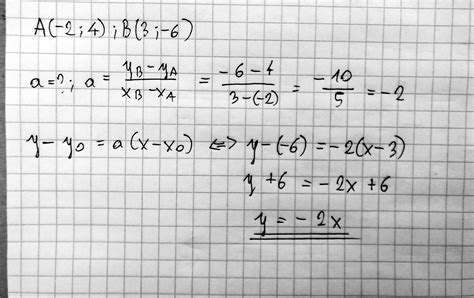 A(-2;4); B(3;-6)
a=?; a = (y_B - y_A)/(x_B - x_A) = (-6-4)/(3-(-2)) = (-10)/5 = -2
y - y_0 = a(x - x_0) <=> y - (-6) = -2(x-3)
y + 6 = -2x + 6
y = -2x